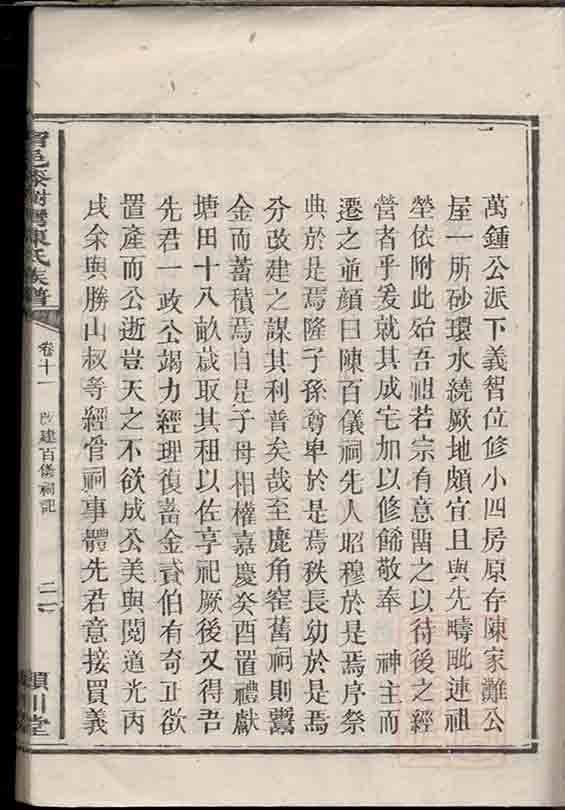 萬鍾公派下義智位修小四房原存陳家灘公
屋一所砂環水繞厥地頗宜且與先疇毗連祖
塋依附此始吾祖若宗有意畱之以待後之經
營者乎爰就其成宅加以修餙敬奉　神主而
遷之並顔曰陳百儀祠先人昭穆於是焉序祭
典於是焉隆子孫尊卑於是焉秩長幼於是焉
分改建之謀其利普矣哉至鹿角窑舊祠則鬻
金而蓄積焉自是子母相權嘉慶癸酉置禮獻
塘田十八畝歲取其租以佐享祀厥後又得吾
先君一政公竭力經理復蓄金貲伯有奇正欲
置產而公逝豈天之不欲成公美與閱道光丙
戌余與勝山叔等經管祠事體先君意接買義
邑漆樹灣陳氏族譜
卷十一
改建百儀祠記
二
潁川堂